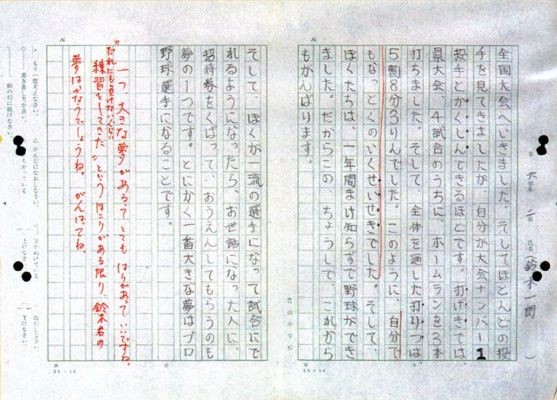 六年 二組 氏名（鈴木一朗）
全国大会へいきました。そしてほとんどの投
手を見てきましたが、自分が大会ナンバー1
投手とかくしんできるほどです。打げきでは
県大会 4試合のうちに、ホームランを3本
打ちました。そして、全体を通した打りつは
5割8分3りんでした。このように、自分で
もなっとくのいくせいせきでした。そして、
ぼくたちは、一年間まけ知らずで野球ができ
ました。だからこの、ちょうしで、これから
もがんばります。
豊山小学校
20×10
そして、ぼくが一流の選手になって試合にで
れるようになったら、お世話になった人に、
招待券をくばって、おうえんしてもらうのも
夢の1つです。とにかく一番大きな夢はプロ
野球選手になることです。
一つ、大きな夢があるってとてもはりがあっていいですね。
“だれにも負けないくらい
練習をしてきた”というほこりがある限り、鈴木君の
夢はかなうでしょうね。がんばってね。
20×10